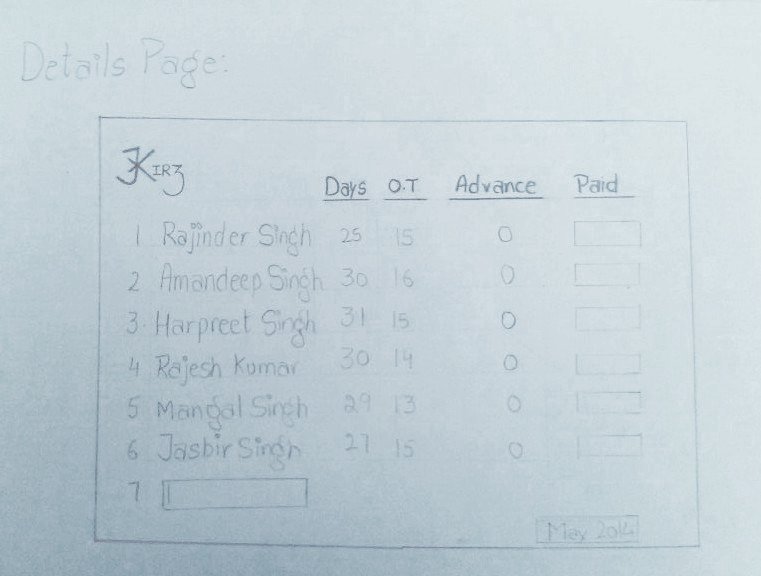 Details Page:
Days O.T Advance Paid
1 Rajinder Singh 25 15 0
2 Amandeep Singh 30 16 0
3 Harpreet Singh 31 15 0
4 Rajesh Kumar 30 14 0
5 Mangal Singh 29 13 0
6 Jasbir Singh 27 15 0
7
May 2014